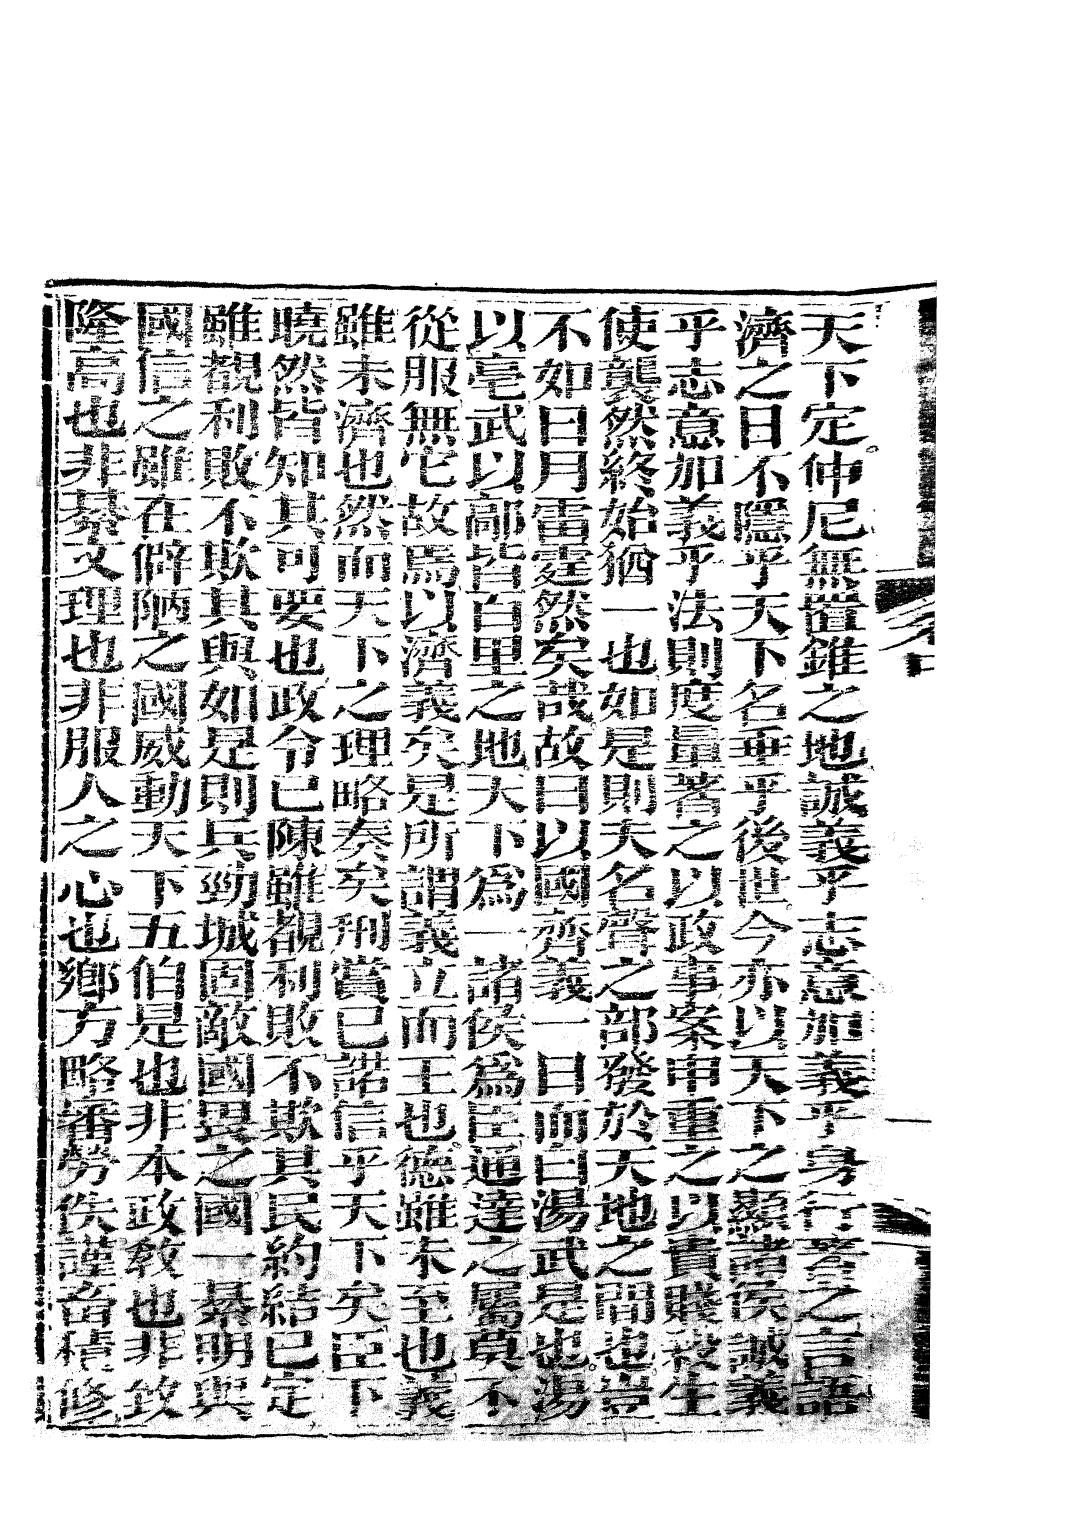 天下定仲尼無置錐之地誠義乎志意加義乎身行箸之言語
濟之日不隱乎天下名垂乎後世今亦以天下之顯諸侯誠義
乎志意加義乎法則度量著之以政事案申重之以貴賤殺生
使襲然終始猶一也如是則夫名聲之部發於天地之間也豈
不如日月雷霆然矣哉故曰以國齊義一日而白湯武是也湯
以亳武以鄗皆百里之地天下爲一諸侯爲臣通達之屬莫不
從服無它故焉以濟義矣是所謂義立而王也德雖未至也義
雖未濟也然而天下之理略奏矣刑賞已諾信乎天下矣臣下
曉然皆知其可要也政令已陳雖覩利敗不欺其民約結已定
雖覩利敗不欺其與如是則兵勁城固敵國畏之國一綦明與
國信之雖在僻陋之國威動天下五伯是也非本政敎也非致
隆高也非綦文理也非服人之心也鄉方略審勞佚謹畜積修